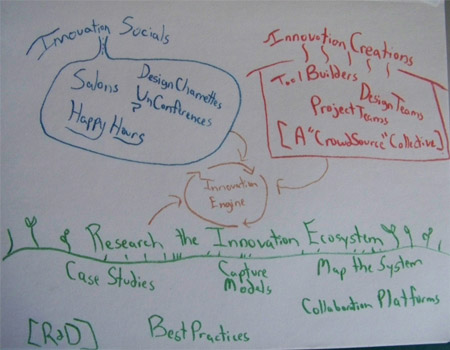 Innovation Socials
Salons
Design Charrettes
UnConferences
?
Happy Hours
Innovation Creations
Tool Builders
Design Teams
Project Teams
[A "CrowdSource" Collective]
Innovation
Engine
Research the Innovation Ecosystem
Case Studies
Capture
Models
Map the System
Collaboration Platforms
[R&D]
Best Practices